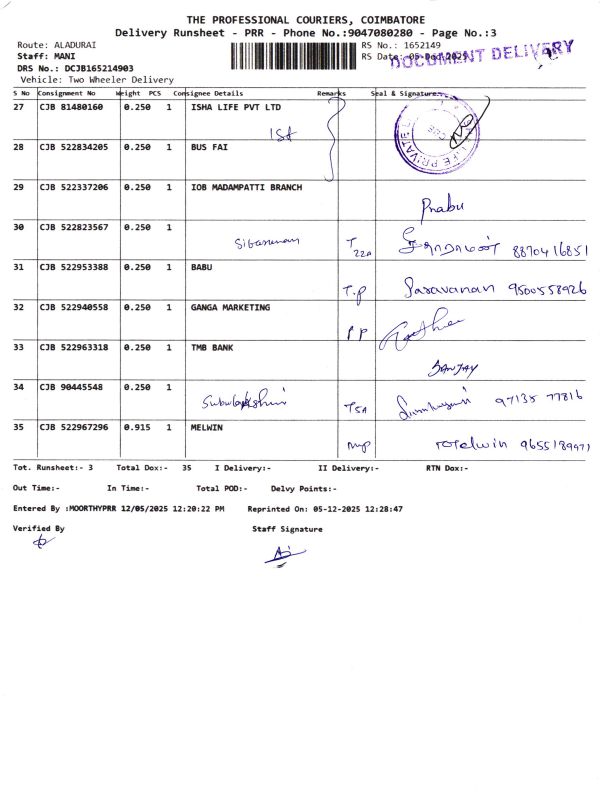 THE PROFESSIONAL COURIERS, COIMBATORE
Delivery Runsheet - PRR - Phone No.:9047080280 - Page No.:3
Route: ALADURAI RS No.: 1652149
Staff: MANI RS Date: 05-Dec-2025
DOCUMENT DELIVERY
DRS No.: DCJB165214903
Vehicle: Two Wheeler Delivery
S No Consignment No Weight PCS Consignee Details Remarks Seal & Signature
27 CJB 81480160 0.250 1 ISHA LIFE PVT LTD
1St
LIFE PRIVATE
28 CJB 522834205 0.250 1 BUS FAI
29 CJB 522337206 0.250 1 IOB MADAMPATTI BRANCH
Prabu
30 CJB 522823567 0.250 1
T 22A 8870416851
31 CJB 522953388 0.250 1 BABU
T.P Saravanan 9500558926
32 CJB 522940558 0.250 1 GANGA MARKETING
PP
33 CJB 522963318 0.250 1 TMB BANK
SANJAY
34 CJB 90445548 0.250 1
TSA 97135 77816
35 CJB 522967296 0.915 1 MELWIN
9655189971
Tot. Runsheet:- 3 Total Dox:- 35 I Delivery:- II Delivery:- RTN Dox:-
Out Time:- In Time:- Total POD:- Delvy Points:-
Entered By :MOORTHYPRR 12/05/2025 12:20:22 PM Reprinted On: 05-12-2025 12:28:47
Verified By Staff Signature